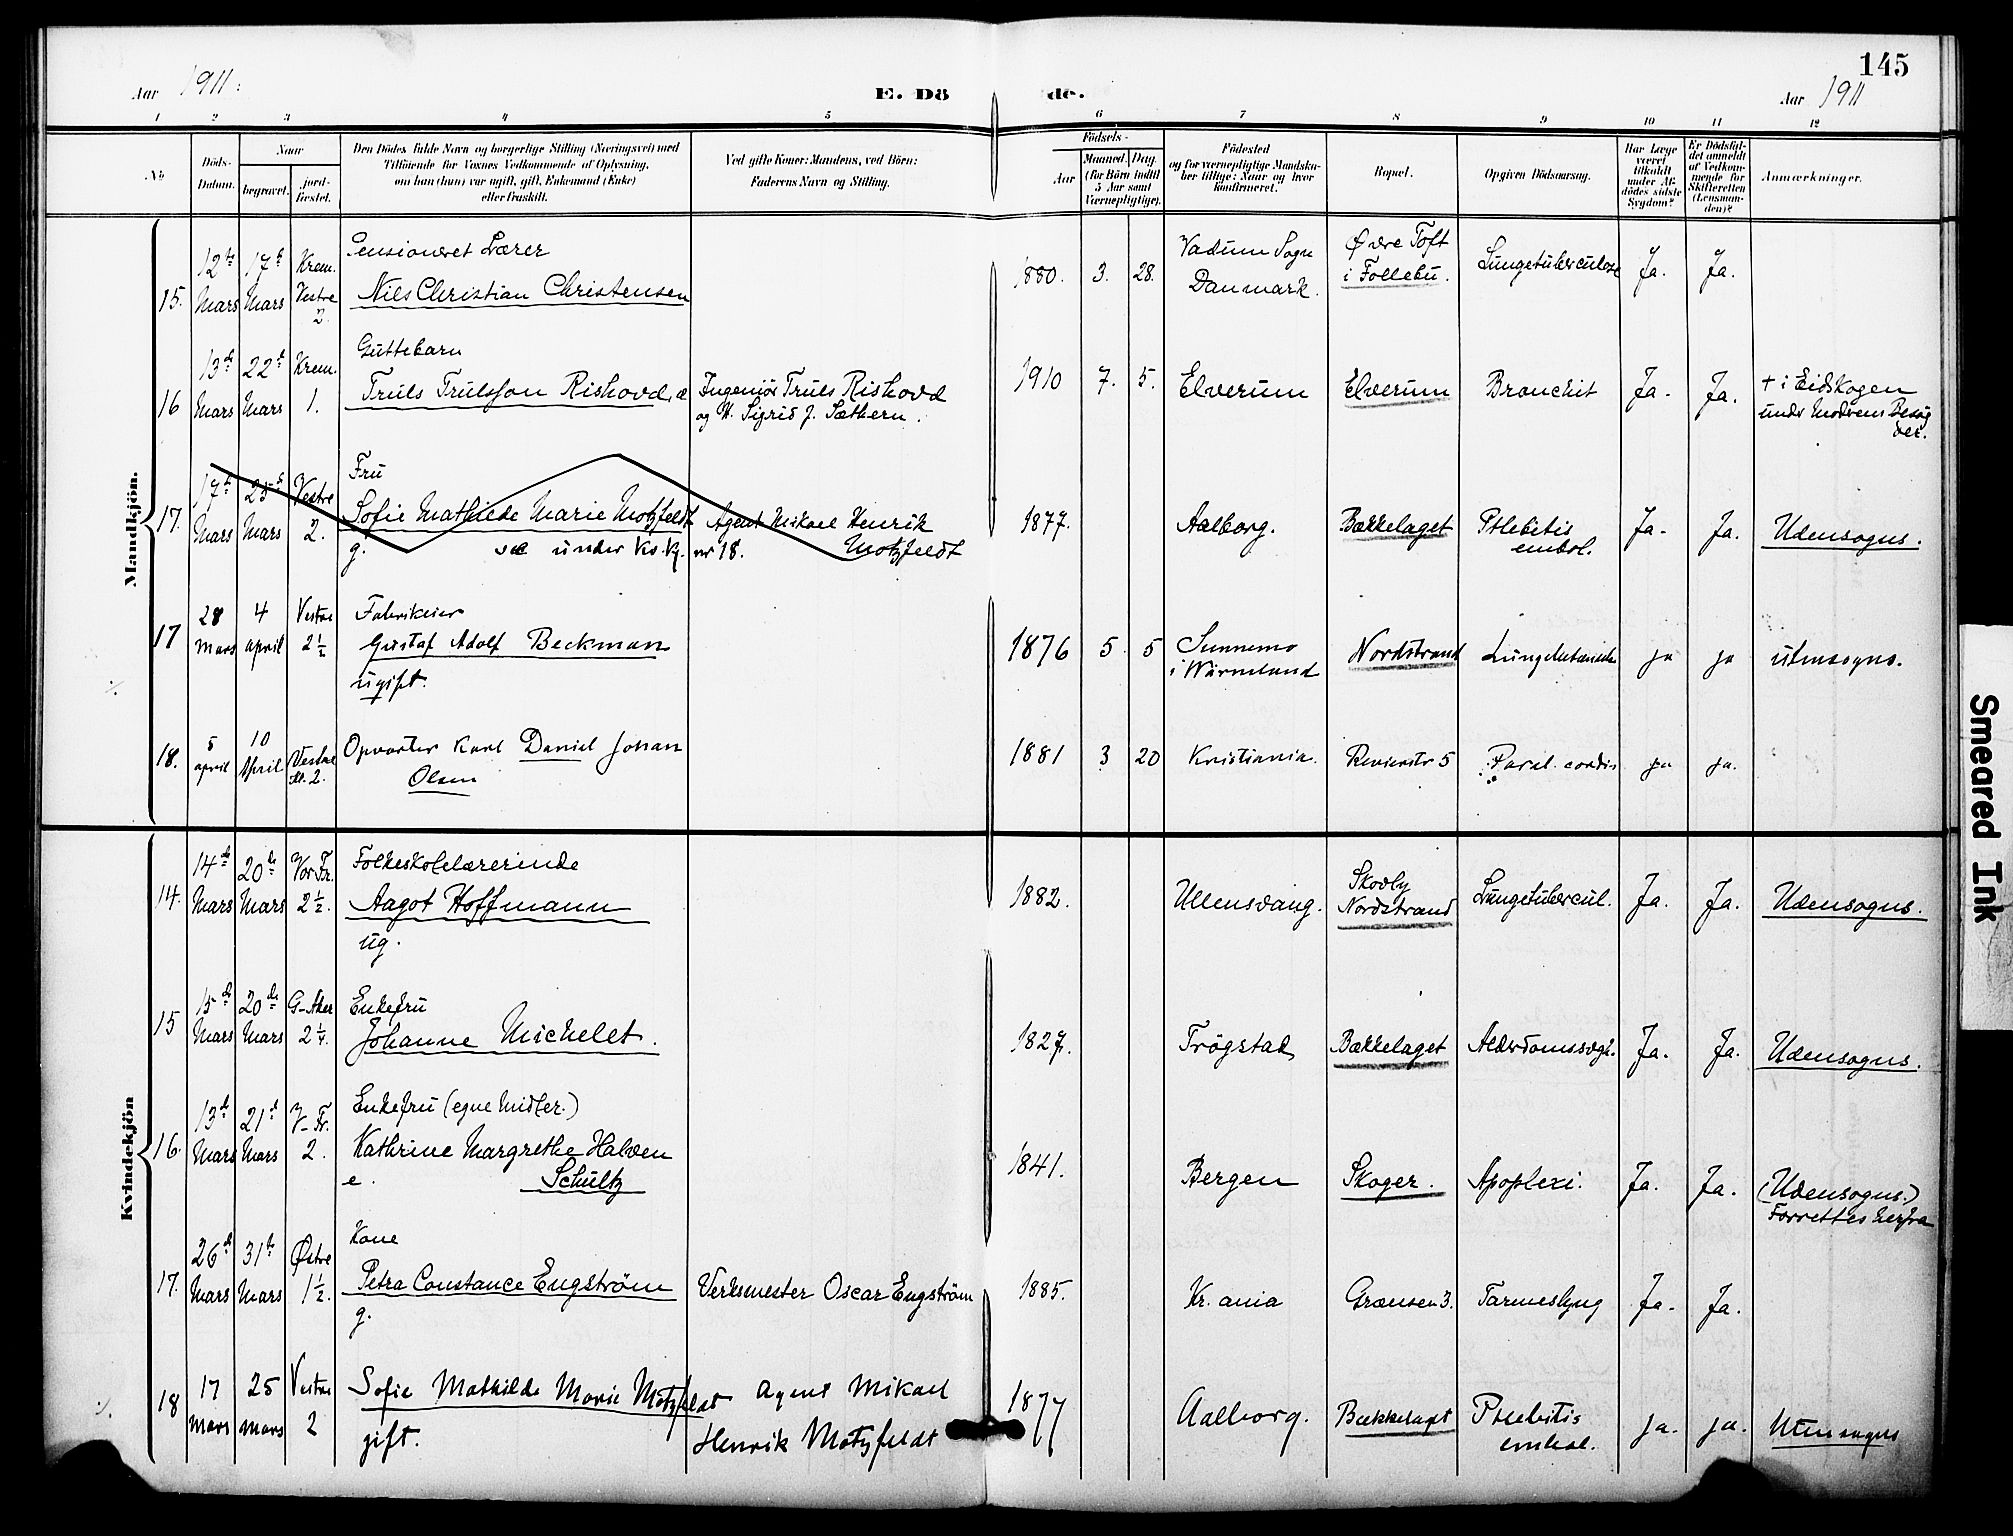 145
Aar 1911.
E. Dö de.
Aar 1911
1 2 3 4 5 6 7 8 9 10 11 12
No
Döds-Datum.
Naar
begravet.
jord-fæstet.
Den Dödes fulde Navn og borgerlige Stilling (Næringsvei) med
Tilföiende for Voxnes Vedkommende af Oplysning,
om han (hun) var ugift, gift, Enkemand (Enke)
eller fraskilt.
Ved gifte Koner: Mandens, ved Börn:
Faderens Navn og Stilling.
Födsels-
Aar
Maaned. Dag.
(for Börn indtil
5 Aar samt
Værnepligtige).
Födested
og for værnepligtige Mandska-
ber tillige: Naar og hvor
konfirmeret.
Bopæl.
Opgiven Dödsaarsag.
Har Læge
været
tilkaldt
under Af-
dödes sidste
Sygdom?
Er Dödsfal-
det anmeldt
af Vedkom-
mende for
Skifteretten
(Lensman-
den)?
Anmærkninger.
Mandkjön.
15. 12te Mars 17de Mars Krem. Vestre 2.
Pensioneret Lærer
Nils Christian Christensen
1880. 3. 28. Vadum Sogn Danmark. Øvre Toft i Follebu. Lungetuberculose Ja. Ja.
16 13de Mars 22de Mars Krem. 1.
Guttebarn
Truls Trulsson Rishovd, æ
Ingeniør Truls Rishovd
og H. Sigrid J. Sæthern.
1910 7. 5. Elverum Elverum Bronchit Ja. Ja. + i Eidskogen
under Modrens Besøg
der.
17. 17de Mars 25de Mars Vestre 2.
Fru
Sofie Mathilde Marie Motzfeldt
g. se under Kv.kj. nr 18.
Agent Mikael Henrik
Motzfeldt
1877. Aalborg. Bækkelaget Phlebitis embol. Ja. Ja. Udensogns.
17 28 mars 4 april Vestre 2½
Fabrikeier
Gustaf Adolf Beckman
ugift.
1876 5 5 Sunnemo i Wärmland Nordstrand ja ja utensogns.
18. 5 april 10 April Vestre Kl. 2.
Opvarter Karl Daniel Johan
Olsen
1881 3 20 Kristiania. Revierstr 5 Paral. cordis ja ja.
Kvindekjön
14. 14de Mars 20de Mars Vor Fr. 2½.
Folkeskolelærerinde
Aagot Hoffmann
ug.
1882. Ullensvang. Skovly Nordstrand Lungetubercul. Ja. Ja. Udensogns.
15 15de Mars 20de Mars G-Aker 2¼.
Enkefru
Johanne Michelet.
1827. Trøgstad Bækkelaget Alderdomssvagh. Ja. Ja. Udensogns.
16. 13de Mars 21de Mars V-Fr. 2.
Enkefru (egne Midler.)
Kathrine Margrethe Halven
e. Schultz
1841. Bergen Skoger. Apoplexi. Ja. Ja. (Udensogns.)
Forrettes herfra
17. 26de Mars 31te Mars Østre 1½.
Kone
Petra Constance Engström
g.
Verksmester Oscar Engström
1885. Kr.ania Grænsen 3. Tarmeslyng Ja. Ja.
18 17 mars 25 mars Vestre 2
Sofie Mathilde Marie Motzfeldt
gift.
Agent Mikael
Henrik Motzfeldt
1877 Aalborg. Bækkelaget Phlebitis embol. ja. ja. Utensogns
Smeared Ink